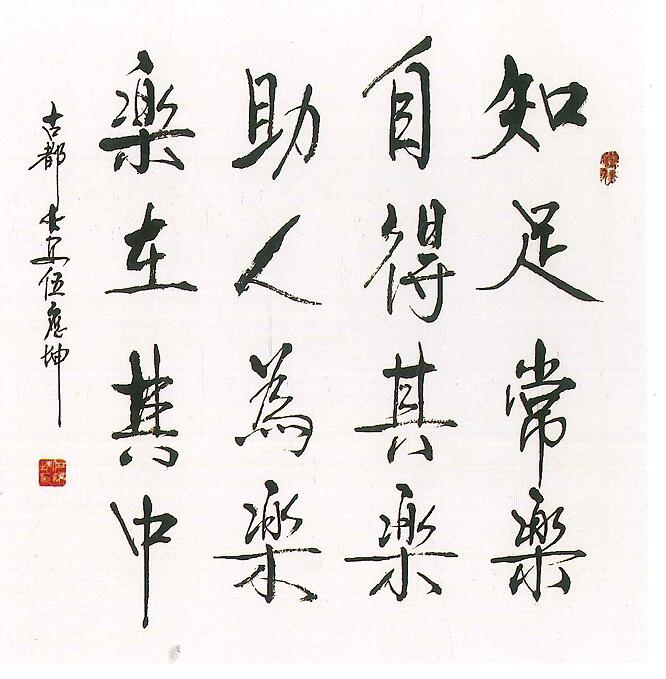 知足常樂
自得其樂
助人為樂
樂在其中
古都長安伍應坤